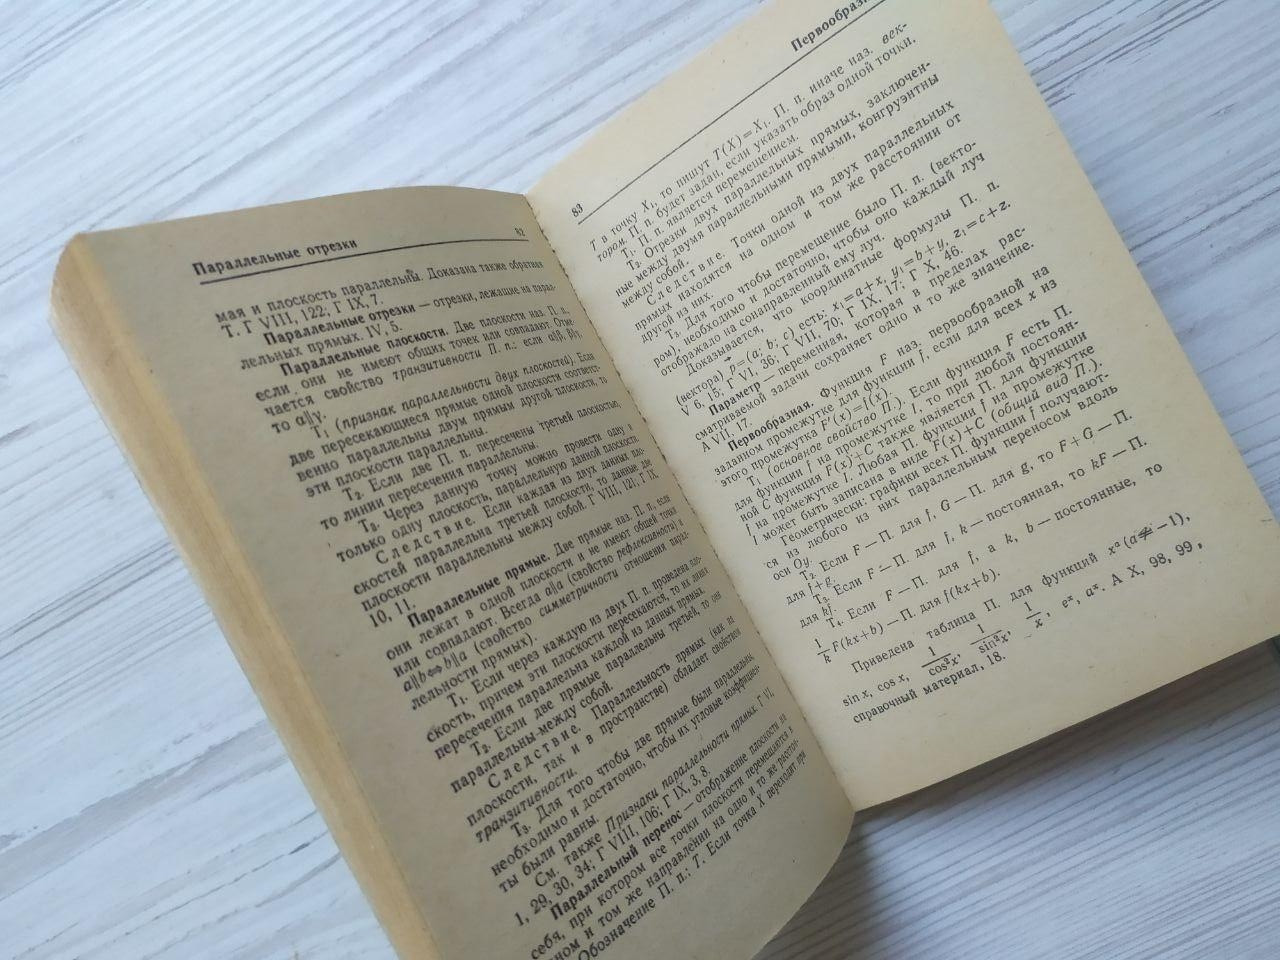 Параллельные отрезки 82
мая и плоскость параллельны. Доказана также обратная
Т. Г VIII, 122; Г IX, 7.
Параллельные отрезки — отрезки, лежащие на парал-
лельных прямых. IV, 5.
Параллельные плоскости. Две плоскости наз. П. п.,
если они не имеют общих точек или совпадают. Отме-
чается свойство транзитивности П. п.: если α∥β, β∥γ
то α∥γ.
Т₁ (признак параллельности двух плоскостей). Если
две пересекающиеся прямые одной плоскости соответст-
венно параллельны двум прямым другой плоскости, то
эти плоскости параллельны.
Т₂. Если две П. п. пересечены третьей плоскостью,
то линии пересечения параллельны.
Т₃. Через данную точку можно провести одну и
только одну плоскость, параллельную данной плоскости.
Следствие. Если каждая из двух данных пло-
скостей параллельна третьей плоскости, то данные две
плоскости параллельны между собой. Г VIII, 121; Г IX,
10, 11.
Параллельные прямые. Две прямые наз. П. п., если
они лежат в одной плоскости и не имеют общей точки
или совпадают. Всегда a∥a (свойство рефлексивности) и
a∥b⇔b∥a (свойство симметричности отношения парал-
лельности прямых).
Т₁. Если через каждую из двух П. п. проведена пло-
скость, причем эти плоскости пересекаются, то их линия
пересечения параллельна каждой из данных прямых.
Т₂. Если две прямые параллельны третьей, то они
параллельны между собой.
Следствие. Параллельность прямых (как на
плоскости, так и в пространстве) обладает свойством
транзитивности.
Т₃. Для того чтобы две прямые были параллельны,
необходимо и достаточно, чтобы их угловые коэффициен-
ты были равны.
См. также Признаки параллельности прямых. Г VI,
1, 29, 30, 34; Г VIII, 106; Г IX, 3, 8.
Параллельный перенос — отображение плоскости на
себя, при котором все точки плоскости перемещаются в
одном и том же направлении на одно и то же расстоя-
Обозначение П. п.: T. Если точка X переходит при
83 Первообраз
T в точку X₁, то пишут T(X)=X₁. П. п. иначе наз. век-
тором. П. п. будет задан, если указать образ одной точки.
Т₁. П. п. является перемещением.
Т₂. Отрезки двух параллельных прямых, заключен-
ные между двумя параллельными прямыми, конгруэнтны
между собой.
Следствие. Точки одной из двух параллельных
прямых находятся на одном и том же расстоянии от
другой из них.
Т₃. Для того чтобы перемещение было П. п. (векто-
ром); необходимо и достаточно, чтобы оно каждый луч
отображало на сонаправленный ему луч.
Доказывается, что координатные формулы П. п.
(вектора) p⃗=(a; b; c) есть: x₁=a+x, y₁=b+y, z₁=c+z.
V 6, 15; Г VI, 36; Г VII, 70; Г IX, 17; Г X, 46.
Параметр — переменная, которая в пределах рас-
сматриваемой задачи сохраняет одно и то же значение.
А VII, 17.
Первообразная. Функция F наз. первообразной на
заданном промежутке для функции f, если для всех x из
этого промежутка F′(x)=f(x).
Т₁ (основное свойство П.). Если функция F есть П.
для функции f на промежутке I, то при любой постоян-
ной C функция F(x)+C также является П. для функции
f на промежутке I. Любая П. функции f на промежутке
I может быть записана в виде F(x)+C (общий вид П.).
Геометрически: графики всех П. функции f получают-
ся из любого из них параллельным переносом вдоль
оси Oy.
Т₂. Если F — П. для f, G — П. для g, то F+G — П.
для f+g.
Т₃. Если F — П. для f, k — постоянная, то kF — П.
для kf.
Т₄. Если F — П. для f, а k, b — постоянные, то
1/k F(kx+b) — П. для f(kx+b).
Приведена таблица П. для функций xᵃ (a≠−1),
sin x, cos x, 1/cos²x, 1/sin²x, 1/x, eˣ, aˣ. А X, 98, 99,
справочный материал, 18.